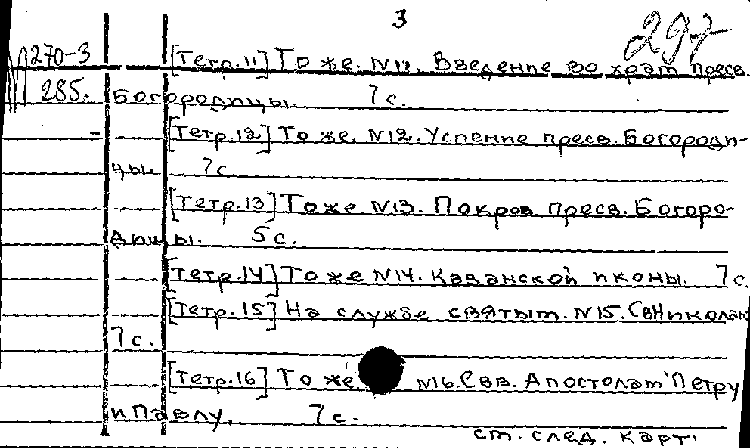 3
297
№ 270-3 [Тетр.11] То же. №11. Введение во храм пресв.
285. Богородицы. 7 с.
[Тетр.12] То же. №12. Успение пресв. Богороди-
цы. 7 с.
[Тетр.13] То же №13. Покров пресв. Богоро-
дицы. 5 с.
[Тетр.14] То же №14. Казанской иконы. 7 с
[Тетр.15] На службе святым. №15. Св Николаю
7 с.
[Тетр.16] То же №16. Свв. Апостолам Петру
и Павлу. 7 с.
см. след. карт.